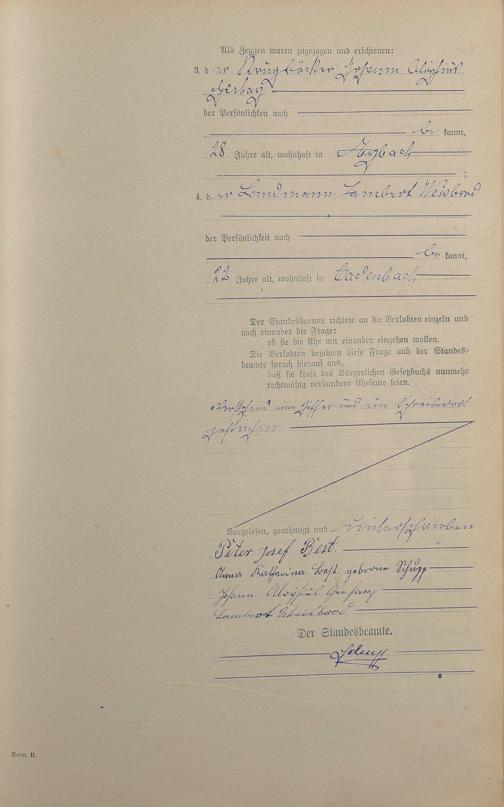 Als Zeugen waren zugezogen und erschienen:
3. d er Krugbäcker Johann Aloysius
Gerharz
der Persönlichkeit nach
be kannt,
28 Jahre alt, wohnhaft in
;
4. d er Landmann Lambert
der Persönlichkeit nach
be kannt,
22 Jahre alt, wohnhaft in Cadenbach
Der Standesbeamte richtete an die Verlobten einzeln und
nach einander die Frage:
ob sie die Ehe mit einander eingehen wollen.
Die Verlobten bejahten diese Frage und der Standes-
beamte sprach hierauf aus,
daß sie kraft des Bürgerlichen Gesetzbuchs nunmehr
rechtmäßig verbundene Eheleute seien.
Vorstehend eine Ziffer und ein
gestrichen.
Vorgelesen, genehmigt und unterschrieben
Peter Josef Best.
Anna Katharina Best, geborne Schupp
Johann Aloysius Gerharz
Lambert
Der Standesbeamte.
Form II.